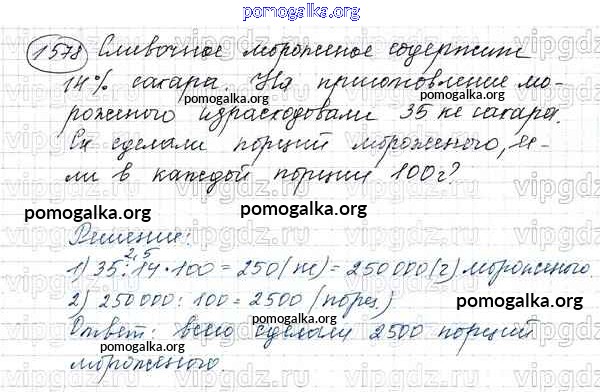 pomogalka.org
1578 Сливочное мороженое содержит
14% сахара. На приготовление мо-
pomogalka.org pomogalka.org
роженого израсходовали 35 кг сахара.
pomogalka.org
Ск сделали порций мороженого, ес-
ли в каждой порции 100г?
pomogalka.org pomogalka.org
Решение:
2,5
1) 35:14·100=250(кг)=250000(г) мороженого.
2) 250000:100=2500 (порц.)
pomogalka.org
Ответ: всего сделали 2500 порций
pomogalka.org
мороженого.
pomogalka.org
vipgdz.ru